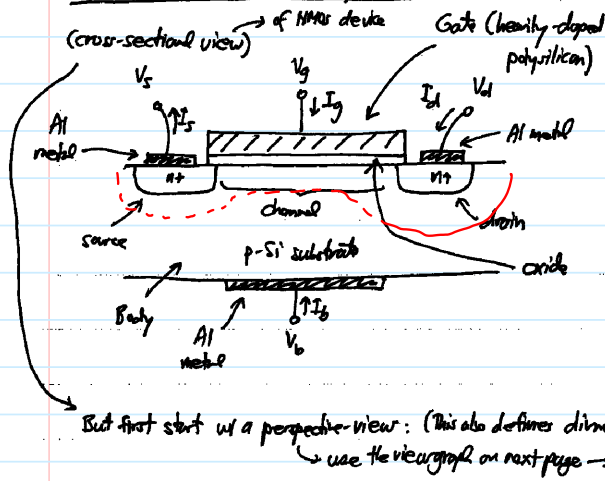 (cross-sectional view) → of NMOS device
Gate (heavily-doped
polysilicon)
Vs
Vg
Id
Vd
↑Is
↓Ig
Al
metal
Al metal
n+
n+
channel
source
drain
p-Si substrate
oxide
Body
↑Ib
Al
metal
Vb
But first start w/ a perspective-view: (This also defines dim
→ use the viewgraph on next page →